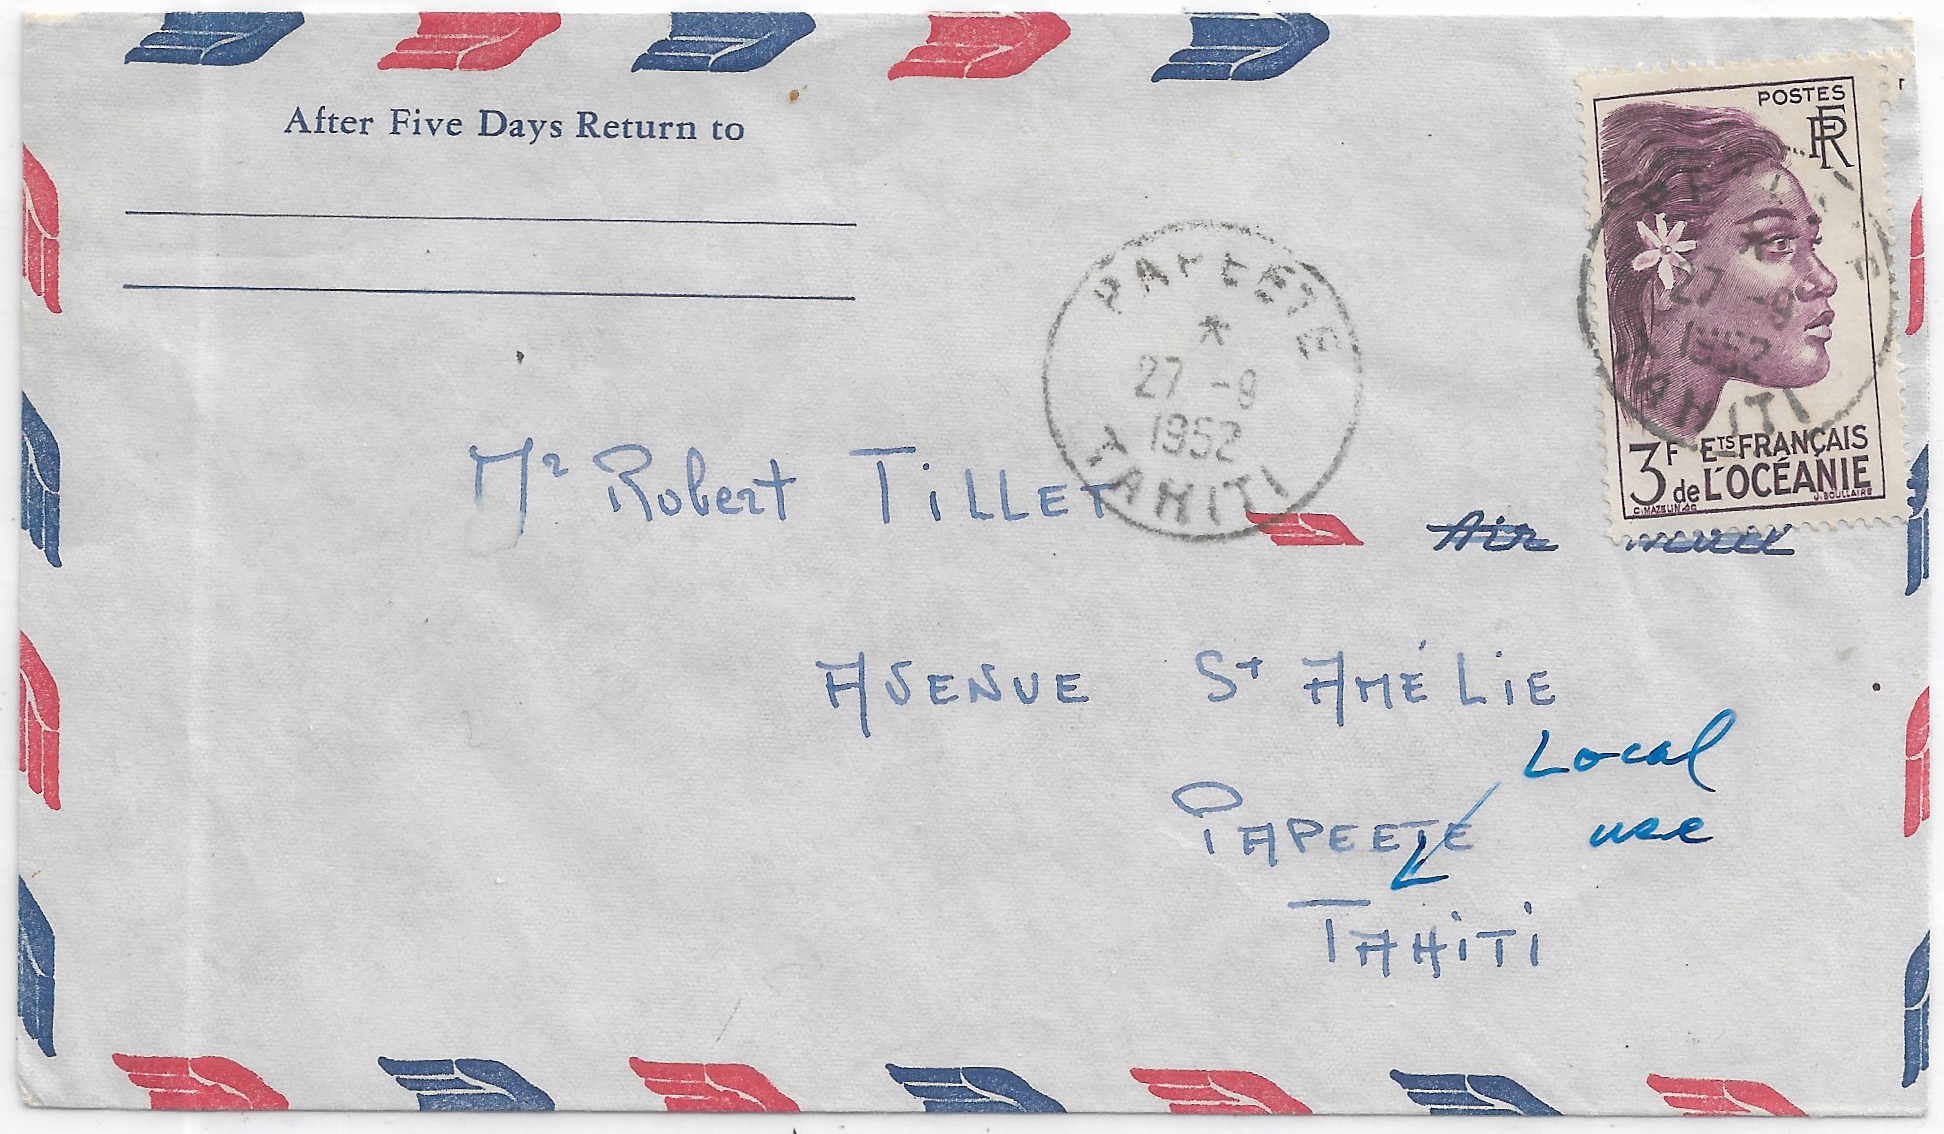 After Five Days Return to
POSTES
RF
3F Ets FRANÇAIS
de L'OCÉANIE
J. BOULLAIRE
C. MAZELIN sc
PAPEETE
*
27 -9
1952
TAHITI
27 -9
1952
TAHITI
Mr Robert TiLLET
Air mail
AVENUE St AMÉLiE
Local
use
PAPEETE
TAHiTi